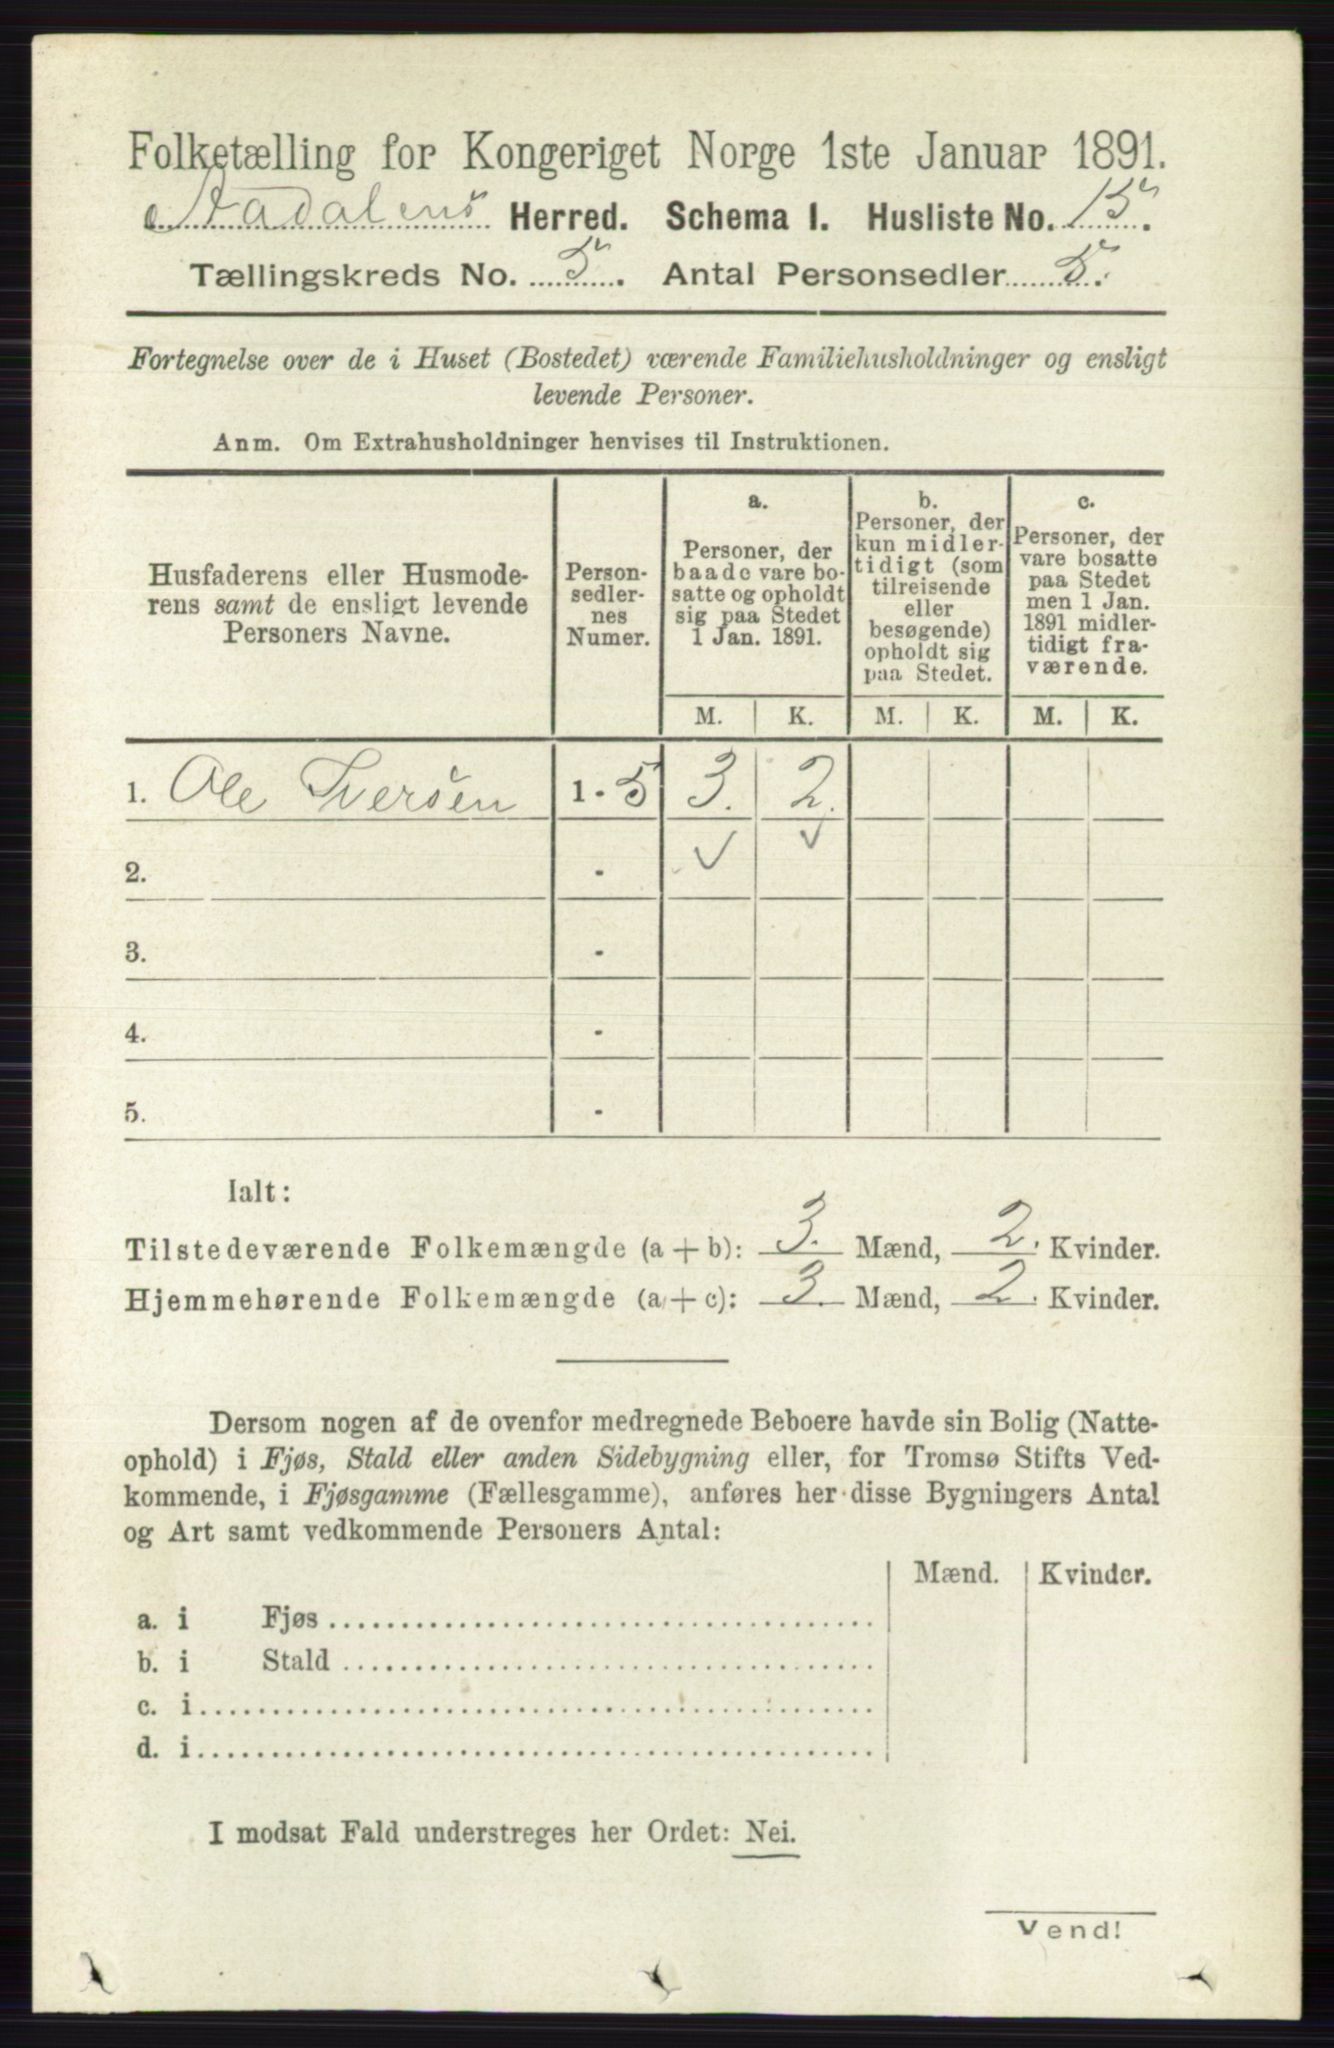 Folketælling for Kongeriget Norge 1ste Januar 1891.
Aadalens Herred. Schema I. Husliste No. 15.
Tællingskreds No. 5. Antal Personsedler 5.
Fortegnelse over de i Huset (Bostedet) værende Familiehusholdninger og ensligt
levende Personer.
Anm. Om Extrahusholdninger henvises til Instruktionen.
Husfaderens eller Husmode-
rens samt de ensligt levende
Personers Navne.
Person-
sedler-
nes
Numer.
a.
Personer, der
baade vare bo-
satte og opholdt
sig paa Stedet
1 Jan. 1891.
b.
Personer, der
kun midler-
tidigt (som
tilreisende
eller
besøgende)
opholdt sig
paa Stedet.
c.
Personer, der
vare bosatte
paa Stedet
men 1 Jan.
1891 midler-
tidigt fra-
værende.
M. K. M. K. M. K.
1. Ole Iversen 1 - 5 3. 2.
2. - ✓ ✓
3. -
4. -
5. -
Ialt:
Tilstedeværende Folkemængde (a + b): 3. Mænd, 2. Kvinder.
Hjemmehørende Folkemængde (a + c): 3. Mænd, 2. Kvinder.
Dersom nogen af de ovenfor medregnede Beboere havde sin Bolig (Natte-
ophold) i Fjøs, Stald eller anden Sidebygning eller, for Tromsø Stifts Ved-
kommende, i Fjøsgamme (Fællesgamme), anføres her disse Bygningers Antal
og Art samt vedkommende Personers Antal:
Mænd. Kvinder.
a. i Fjøs
b. i Stald
c. i
d. i
I modsat Fald understreges her Ordet: Nei.
Vend!